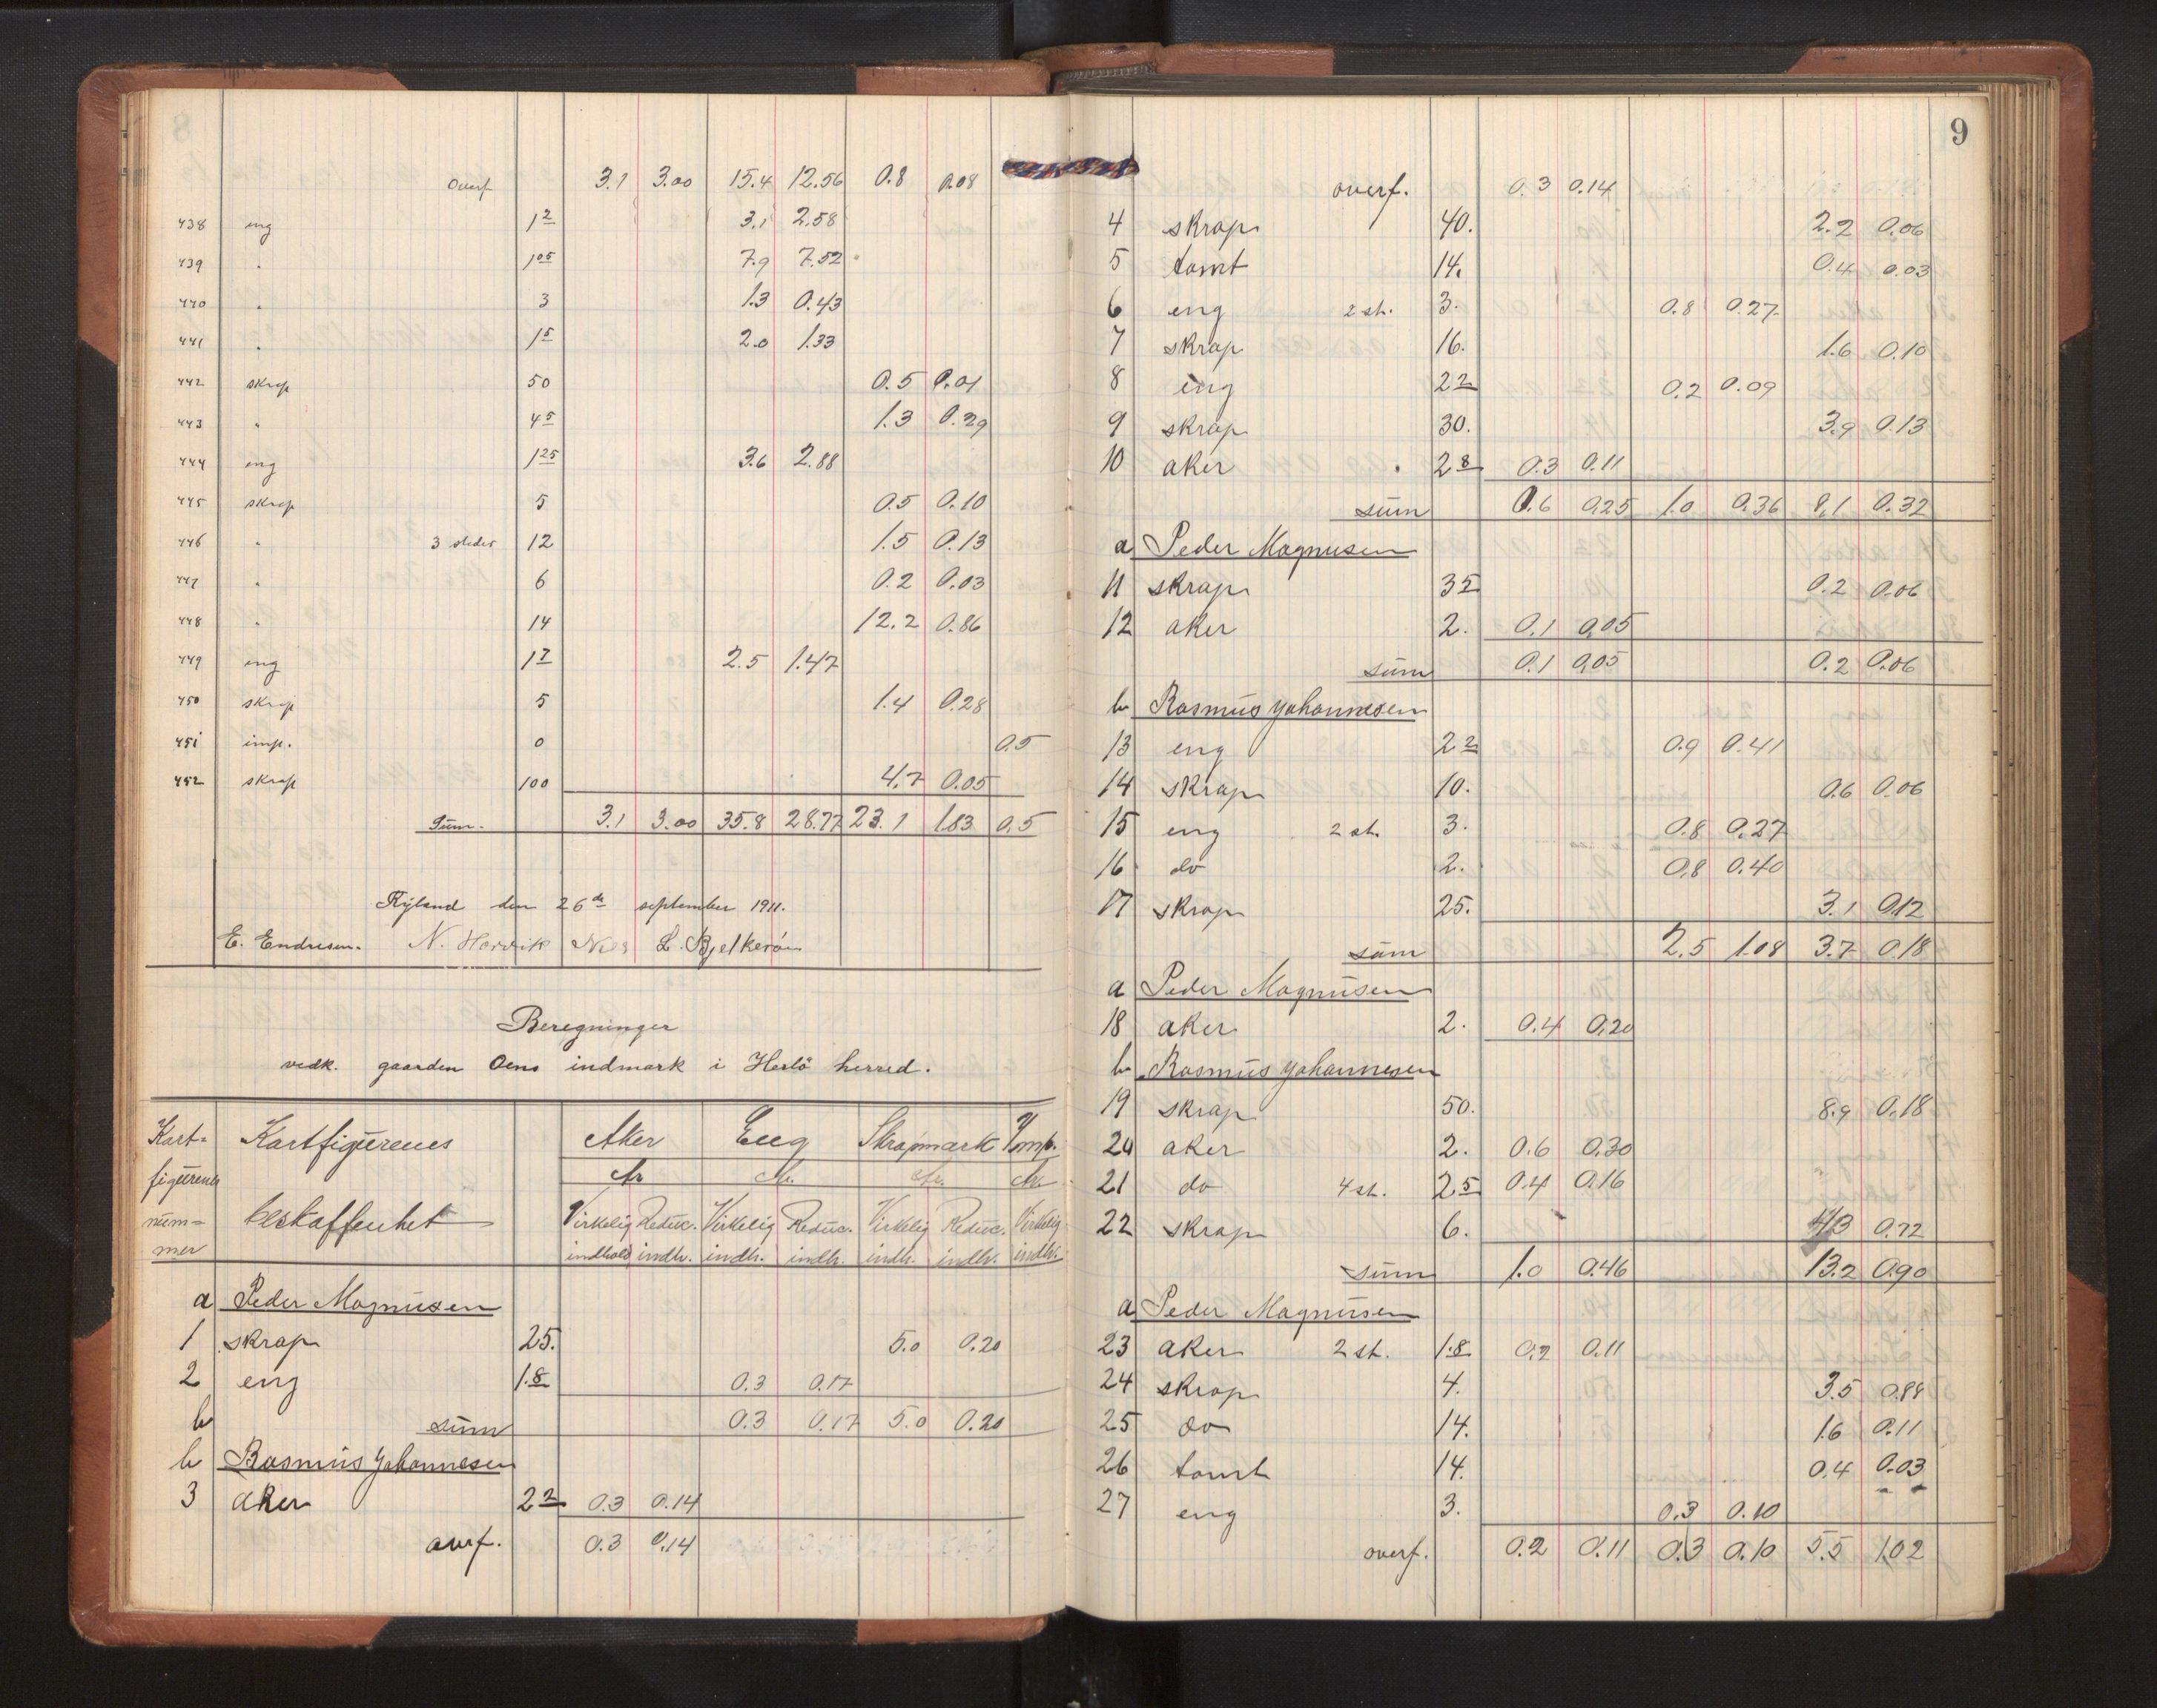 overf 3.1 3.00 15.4 12.56 0.8 0.08
438 eng 1 2 3.1 2.58
439 " 1 05 7.9 7.52
440 " 3 1.3 0.43
441 " 1 5 2.0 1.33
442 skrap 50 0.5 0.01
443 " 4 5 1.3 0.29
444 eng 1 25 3.6 2.88
445 skrap 5 0.5 0.10
446 " 3 steder 12 1.5 0.13
447 " 6 0.2 0.03
448 " 14 12.2 0.86
449 eng 1 7 2.5 1.47
450 skrap 5 1.4 0.28
451 imp. 0 0.5
452 skrap 100 4.7 0.05
Sum. 3.1 3.00 35.8 28.77 23.1 1.83 0.5
Ryland den 26de september 1911.
E. Endresen. N. Horvik Nils L. Bjelkerøen
Beregninger
vedk. gaarden Oens indmark i Herlö herred.
Kart= Kartfigurenes Aker Eng Skrapmark Imp.
figurenes Ar Ar. Ar. Ar
num= beskaffenhet Virkelig Reduc. Virkelig Reduc. Virkelig Reduc. Virkelig
mer indhold indh. indh. indh. indh. indh. indh.
a Peder Magnusen
1 skrap 25. 5.0 0.20
2 eng 1.8 0.3 0.17
b sum 0.3 0.17 5.0 0.20
b Rasmus Johannesen
3 aker 2 2 0.3 0.14
overf. 0.3 0.14
9
overf. 0.3 0.14
4 skrap 40. 2.2 0.06
5 tomt 14. 0.4 0.03
6 eng 2 st. 3. 0.8 0.27
7 skrap 16. 1.6 0.10
8 eng 2 2 0.2 0.09
9 skrap 30. 3.9 0.13
10 aker 2 8 0.3 0.11
sum 0.6 0.25 1.0 0.36 8.1 0.32
a Peder Magnusen
11 skrap 3 5 0.2 0.06
12 aker 2. 0.1 0.05
sum 0.1 0.05 0.2 0.06
b Rasmus Johannesen
13 eng 2 2 0.9 0.41
14 skrap 10. 0.6 0.06
15 eng 2 st. 3. 0.8 0.27
16 do 2. 0.8 0.40
17 skrap 25. 3.1 0.12
sum 2.5 1.08 3.7 0.18
a Peder Magnusen
18 aker 2. 0.4 0.20
b Rasmus Johannesen
19 skrap 50. 8.9 0.18
20 aker 2. 0.6 0.30
21 do 4 st. 2 5 0.4 0.16
22 skrap 6. 4.3 0.72
sum 1.0 0.46 13.2 0.90
a Peder Magnusen
23 aker 2 st. 1.8 0.2 0.11
24 skrap 4. 3.5 0.88
25 do 14. 1.6 0.11
26 tomt 14. 0.4 0.03
27 eng 3. 0.3 0.10
overf. 0.2 0.11 0.3 0.10 5.5 1.02